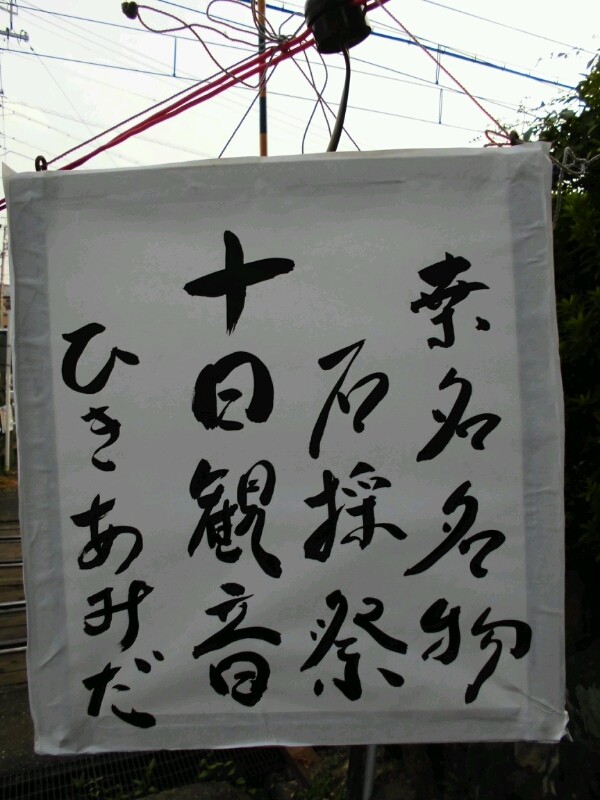 桑名名物
石採祭
十日観音
ひきあみだ